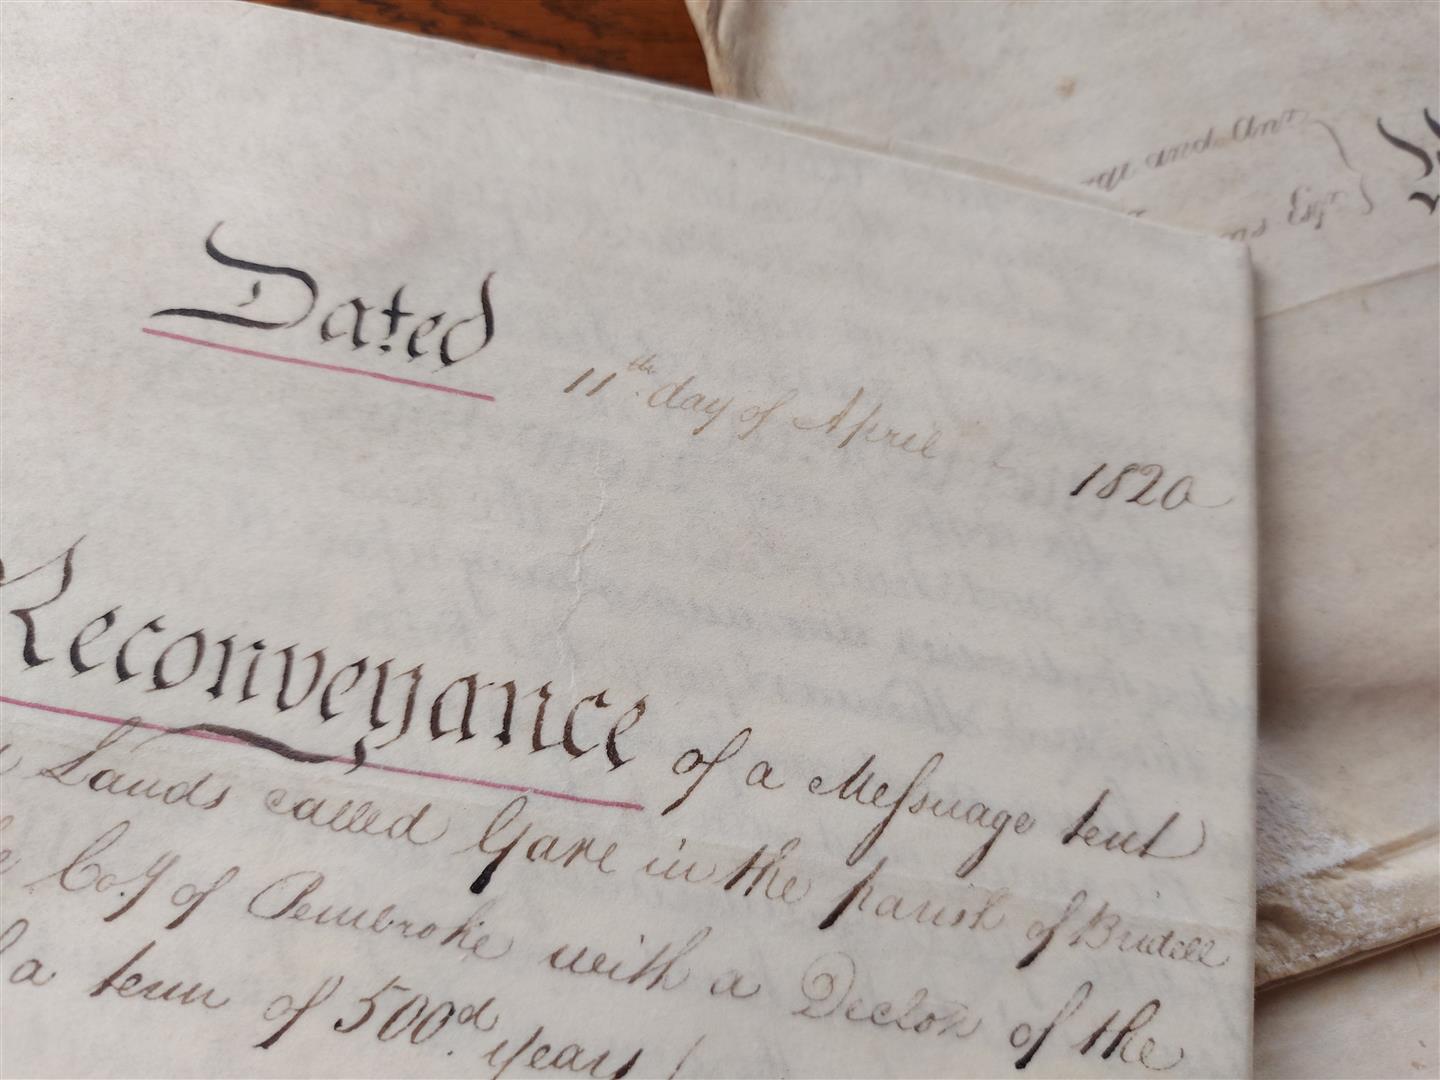 Dated 11th day of April 1820
Reconveyance of a Messuage tent
Lands called Gare in the parish of Bridell
Co.y of Pembroke with a Decton of the
a term of 500d. years
and Ann
Esqrs